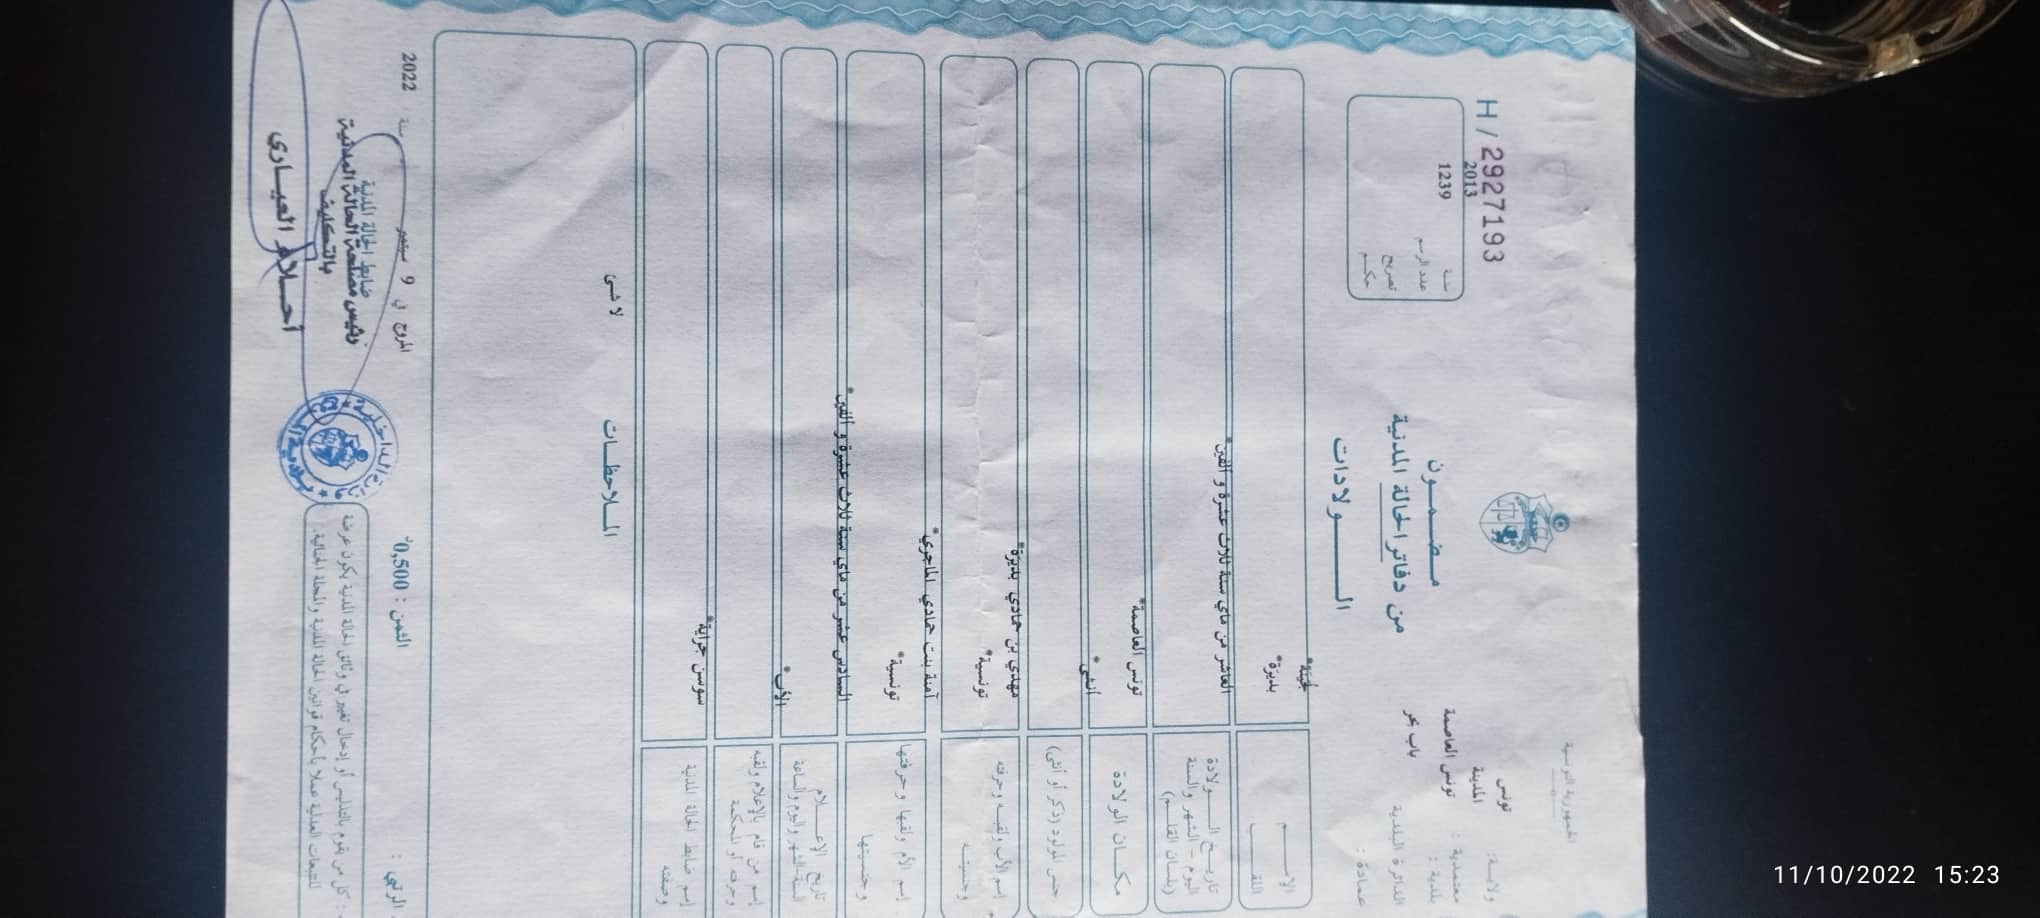 الجمهورية التونسية
ولاية : تونس
معتمدية : المدينة
بلدية : تونس العاصمة
الدائرة البلدية باب بحر
عمادة :
H / 2927193
سنة 2013
عدد الرسم 1239
تصريح
حكم
مضمون
من دفاتر الحالة المدنية
الولادات
الاسم
اللقب بديرة*
تاريخ الولادة
اليوم - الشهر والسنة
(بلسان القلم)
العاشر من ماي سنة ثلاث عشرة و ألفين*
مكان الولادة تونس العاصمة*
جنس المولود (ذكر أو أنثى) أنثى*
إسم الأب ولقبه وحرفته
وجنسيته
مهدي بن حمادي بديرة*
تونسية*
إسم الأم ولقبها وحرفتها
وجنسيتها
آمنة بنت حمادي الماجري*
تونسية*
تاريخ الإعلام
السنة-الشهر واليوم والساعة
السادس عشر من ماي سنة ثلاث عشرة و ألفين*
إسم من قام بالإعلام ولقبه
وحرفته أو المحكمة
الأب*
إسم ضابط الحالة المدنية
وصفته
سوسن جراية*
الملاحظات
لا شئ
الثمن : 0,500
المروج في 9 سبتمبر سنة 2022
ضابط الحالة المدنية
رئيس مصلحة الحالة المدنية
بالتكليف
أحلام العياري
: كل من يقوم بالتدليس أو إدخال تغيير في وثائق الحالة المدنية يكون عرضة
للتتبعات العدلية عملا بأحكام قوانين الحالة المدنية والمجلة الجنائية.
11/10/2022 15:23